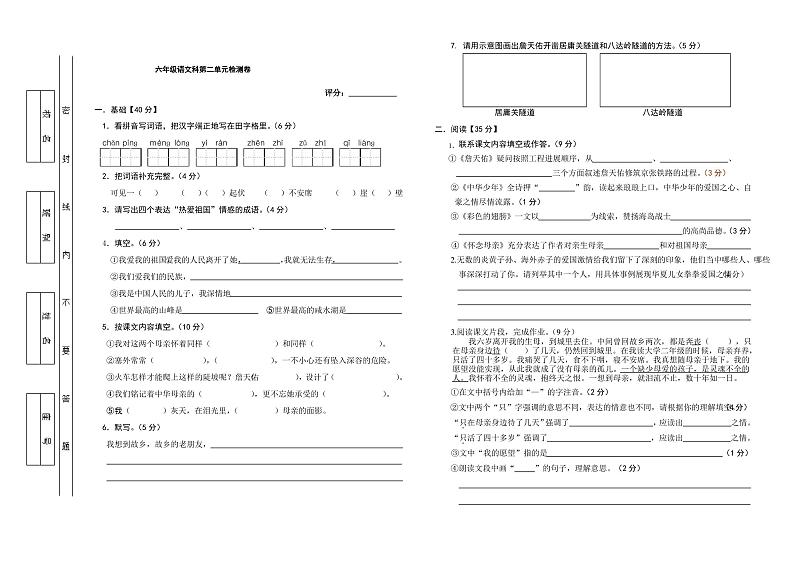 六年级语文科第二单元检测卷
评分：
一．基础【40 分】
1．看拼音写词语，把汉字端正地写在田字格里。（6 分）
chán píng　méng lóng　yí rán　zhēn zhì　zǔ zhī　qì liàng
2．把词语补充完整。（4 分）
可见一（　）　（　）（　）起伏　（　）不安席　（　）崖（　）壁
3．请写出四个表达“热爱祖国”情感的成语。（4 分）
4．填空。（6 分）
①我爱我的祖国爱我的人民离开了她，，我就无法生存，。
②我们爱我们的民族，
③我是中国人民的儿子，我深情地
④世界最高的山峰是　⑤世界最高的咸水湖是
5．按课文内容填空。（10 分）
①我对这两个母亲怀着同样（　）和同样（　）。
②塞外常常（　），（　），一不小心还有坠入深谷的危险。
③火车怎样才能爬上这样的陡坡呢？詹天佑（　），设计了（　）。
④我们铭记着中华母亲的（　），更不忘她承受的（　）。
⑤我（　）灰天，在泪光里，（　）母亲的面影。
6．默写。（5 分）
我想到故乡，故乡的老朋友，
密
封
线
内
不
要
答
题
7．请用示意图画出詹天佑开凿居庸关隧道和八达岭隧道的方法。（5 分）
居庸关隧道　八达岭隧道
二．阅读【35 分】
1．联系课文内容填空或作答。（9 分）
①《詹天佑》疑问按照工程进展顺序，从、、
三个方面叙述詹天佑修筑京张铁路的过程。（3 分）
②《中华少年》全诗押“”韵，读起来琅琅上口，中华少年的爱国之心、自
豪之情尽情流露。（1 分）
③《彩色的翅膀》一文以为线索，赞扬海岛战士
的高尚品德。（3 分）
④《怀念母亲》充分表达了作者对亲生母亲和对祖国母亲
2.无数的炎黄子孙、海外赤子的爱国激情给我们留下了深刻的印象，他们当中哪些人、哪些
事深深打动了你，请列举其中一个人，用具体事例展现华夏儿女拳拳爱国之情
3.阅读课文片段，完成作业。（9 分）
我六岁离开我的生母，到城里去住。中间曾回故乡两次，都是奔丧（　），只
在母亲身边待（　）了几天，仍然回到城里。在我读大学二年级的时候，母亲弃养，
只活了四十多岁。我痛哭了几天，食不下咽，寝不安席。我真想随母亲于地下。我的
愿望没能实现，从此我就成了没有母亲的孤儿。一个缺少母爱的孩子，是灵魂不全的
人。我怀着不全的灵魂，抱终天之恨。一想到母亲，就泪流不止，数十年如一日。
①在文中括号内给加“—”的字注音。（2 分）
②文中两个“只”字强调的意思不同，表达的情意也不同，请根据你的理解填空
“只在母亲身边待了几天”强调了，应读出之情。
“只活了四十多岁”强调了，应读出之情。
③文中“我的愿望”指的是（1 分）
④朗读文段中画“”的句子，理解意思。（2 分）